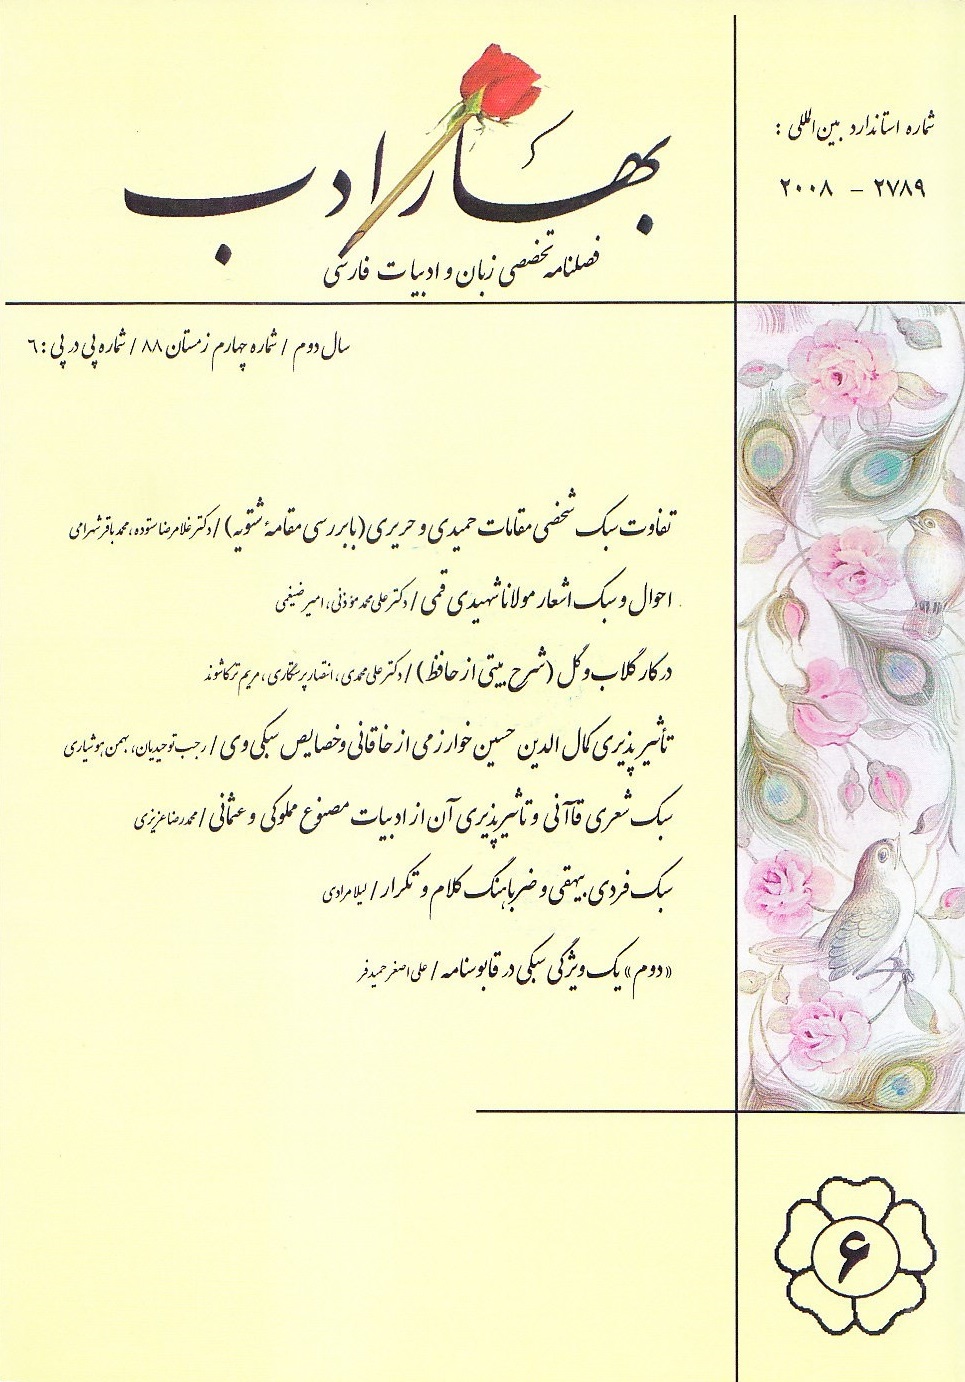 بهار ادب
فصلنامه تخصصی زبان و ادبیات فارسی
شماره استاندارد بین‌المللی :
۲۰۰۸ – ۲۷۸۹
سال دوم / شماره چهارم زمستان ۸۸ / شماره پی در پی : ۶
تفاوت سبک شخصی مقامات حمیدی و حریری (با بررسی مقامهٔ شتویه) / دکتر غلامرضا ستوده، محمد باقر شهرامی
احوال و سبک اشعار مولانا شهیدی قمی / دکتر علی محمد مؤذنی، امیر ضیغمی
در کار گلاب و گل (شرح بیتی از حافظ) / دکتر علی محمدی، انتصار پرستگاری، مریم ترکاشوند
تأثیر پذیری کمال الدین حسین خوارزمی از خاقانی و خصایص سبکی وی / رجب توحیدیان، بهمن هوشیاری
سبک شعری قاآنی و تاثیر پذیری آن از ادبیات مصنوع مملوکی و عثمانی / محمد رضا عزیزی
سبک فردی بیهقی و ضرباهنگ کلام و تکرار / لیلا مرادی
«دوم» یک ویژگی سبکی در قابوسنامه / علی اصغر حمیدفر
۶